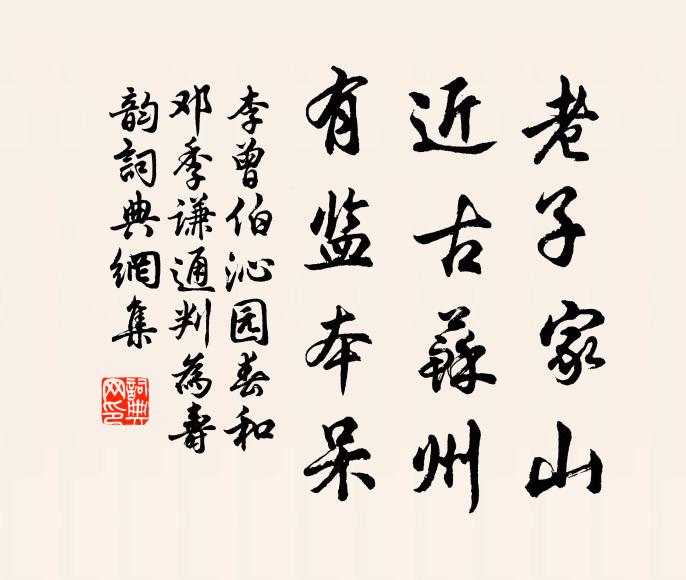 老子家山
近古蘇州
有监本呆
李曾伯沁园春和
邓季谦通判為壽
韵詞典網集
詞典网印